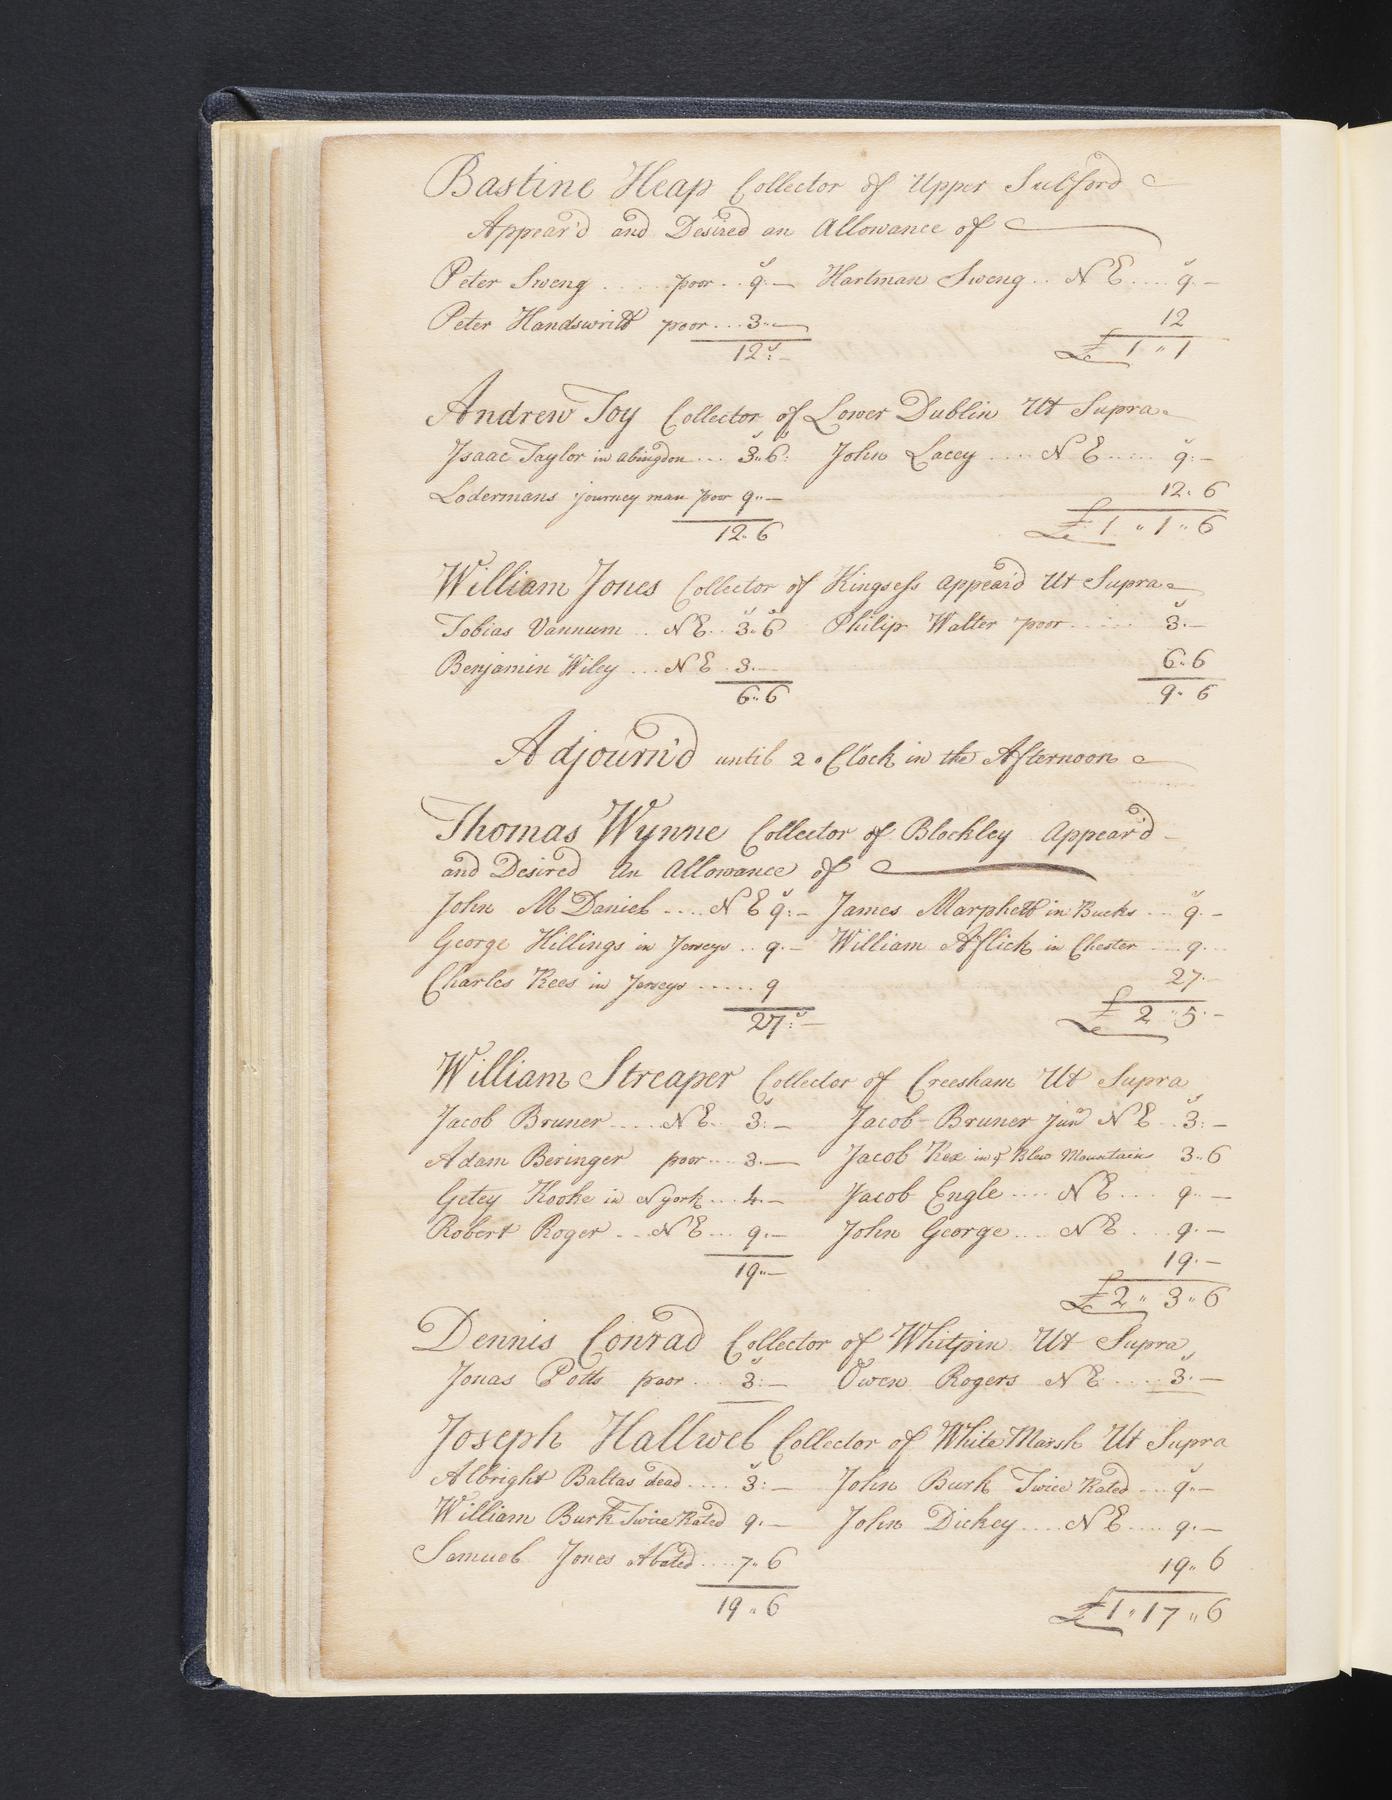 Bastine Heap Collector of Upper Sulford
Appear'd and Desired an Allowance of
Peter Sweng ..... poor .. 9:— Hartman Sweng .. N E .... 9.—
Peter Handswritt poor ... 3.. 12
12:— £ 1 " 1
Andrew Toy Collector of Lower Dublin Ut Supra
Isaac Taylor in abingdon ... 3..6: John Lacey .... N E .... 9:—
Lodermans journey man poor 9..— 12. 6
12. 6 £ 1 " 1 " 6
William Jones Collector of Kingsess appear'd Ut Supra
Tobias Vannum .. N E .. 3. 6 Philip Walter poor ..... 3.—
Benjamin Wiley ... N E .. 3.— 6.. 6
6.. 6 9. 6
Adjourn'd until 2 o Clock in the Afternoon
Thomas Wynne Collector of Blockley Appear'd
and Desired An Allowance of
John McDaniel .... N E 9:— James Marphett in Bucks ... 9.—
George Hillings in Jerseys .. 9.— William Aflick in Chester ... 9...
Charles Rees in Jerseys ..... 9 27.—
27:— £ 2 " 5.—
William Streaper Collector of Creesham Ut Supra
Jacob Bruner .... N E. 3:— Jacob Bruner Junr N E .. 3:—
Adam Beringer poor ... 3.— Jacob Rex in ye Blew Mountains 3..6
Getey Kooke in N york ... 4.— Jacob Engle .... N E .... 9.—
Robert Roger ... N E ... 9.— John George ... N E . .. 9.—
19..— 19.—
£ 2 " 3 " 6
Dennis Conrad Collector of Whitpin Ut Supra
Jonas Potts poor .... 3:— Owen Rogers N E .... 3.—
Joseph Hallwel Collector of White Marsh Ut Supra
Albright Baltas dead .... 3:— John Burk Twice Rated ... 9.—
William Burk Twice Rated 9.— John Dickey .... N E .... 9.—
Samuel Jones Abated ... 7.. 6 19.. 6
19 .. 6 £ 1 " 17 " 6